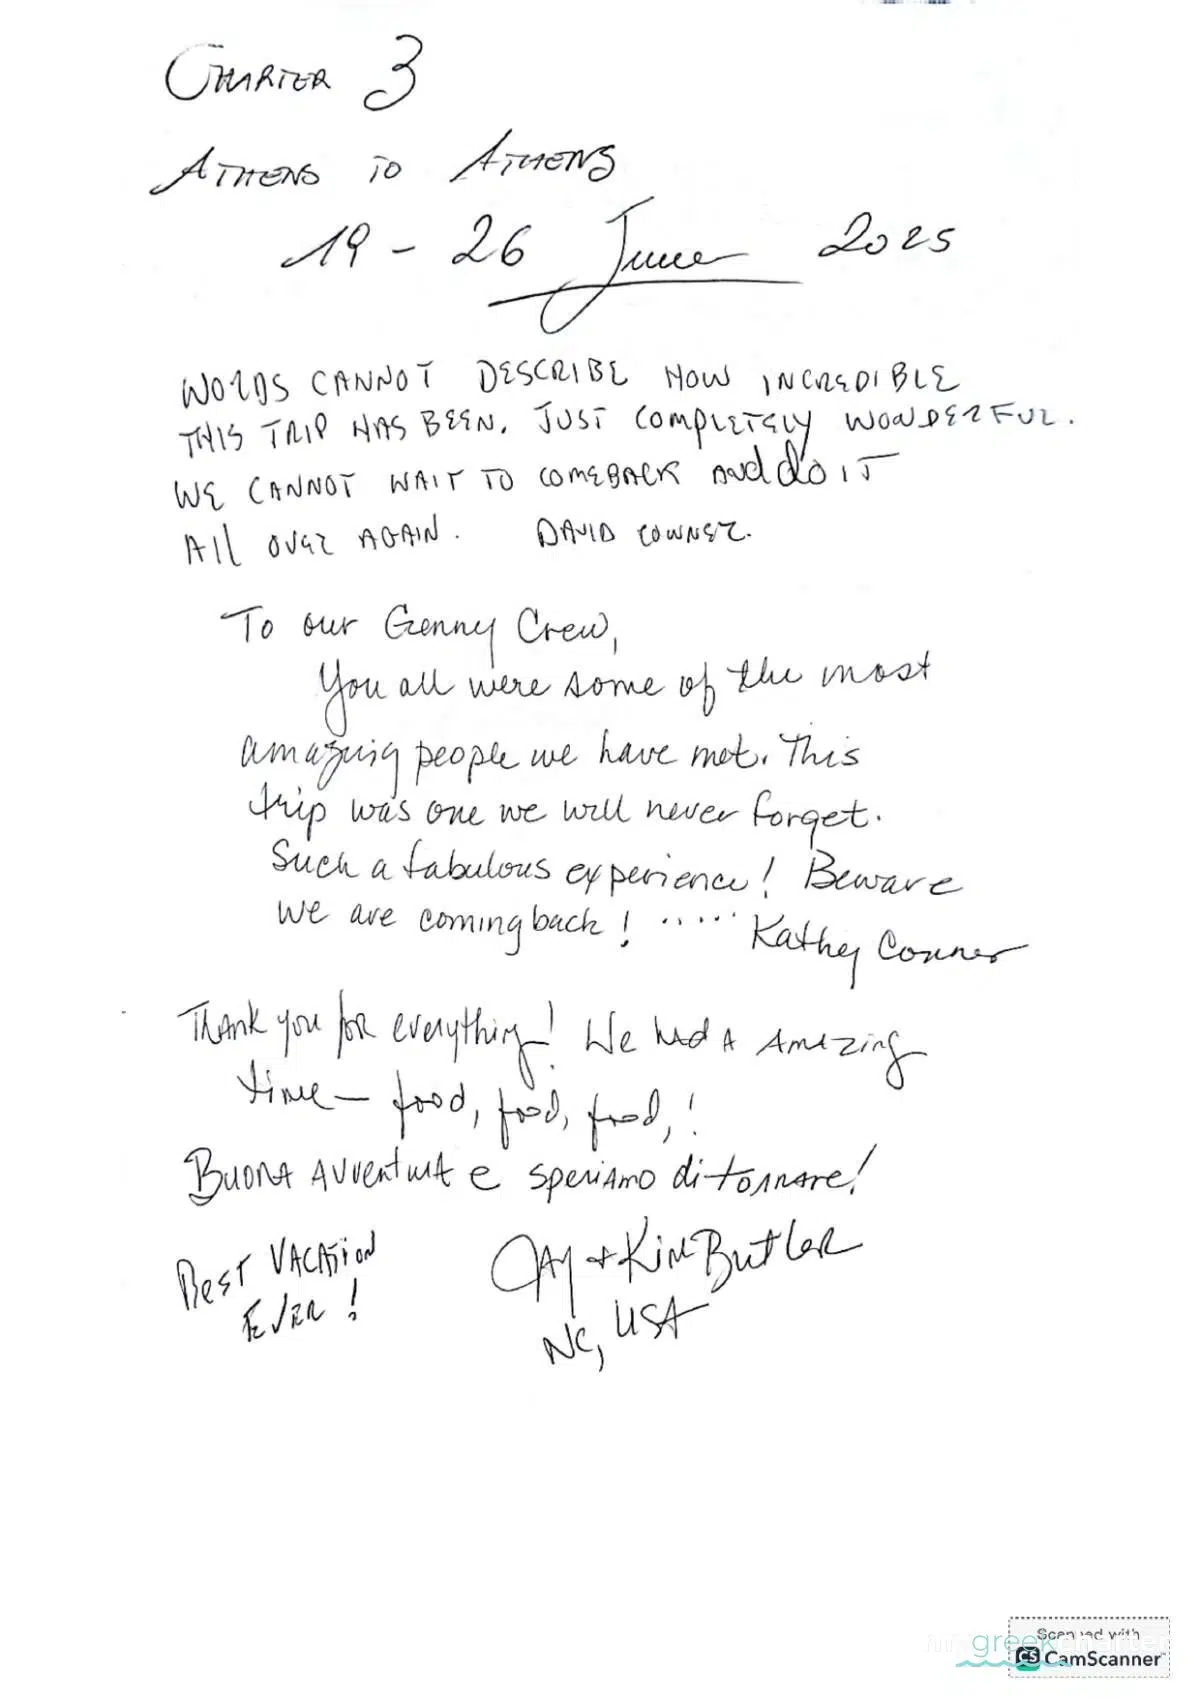 CHARTER 3
ATHENS TO ATHENS
19 - 26 June 2025
WORDS CANNOT DESCRIBE HOW INCREDIBLE
THIS TRIP HAS BEEN. JUST COMPLETELY WONDERFUL.
WE CANNOT WAIT TO COMEBACK AND do IT
All OVER AGAIN. DAVID CONNER.
To our Genny Crew,
You all were some of the most
amazing people we have met. This
trip was one we will never forget.
Such a fabulous experience! Beware
we are coming back! ..... Kathy Conner
Thank you for everything! We had a amazing
time - food, food, food,!
Buona avventura e speriamo di tornare!
Best Vacation
Ever!
Jay + Kim Butler
NC, USA
Scanned with
my greek charter
CS CamScanner